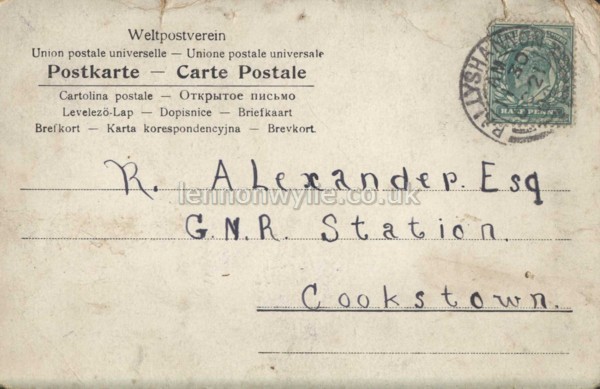 Weltpostverein
Union postale universelle — Unione postale universale
Postkarte — Carte Postale
Cartolina postale — Открытое письмо
Levelező-Lap — Dopisnice — Briefkaart
Brefkort — Karta korespondencyjna — Brevkort.
BALLYSHANNON
HALF PENNY
R. Alexander. Esq
lennonwylie.co.uk
G.N.R. Station.
Cookstown.